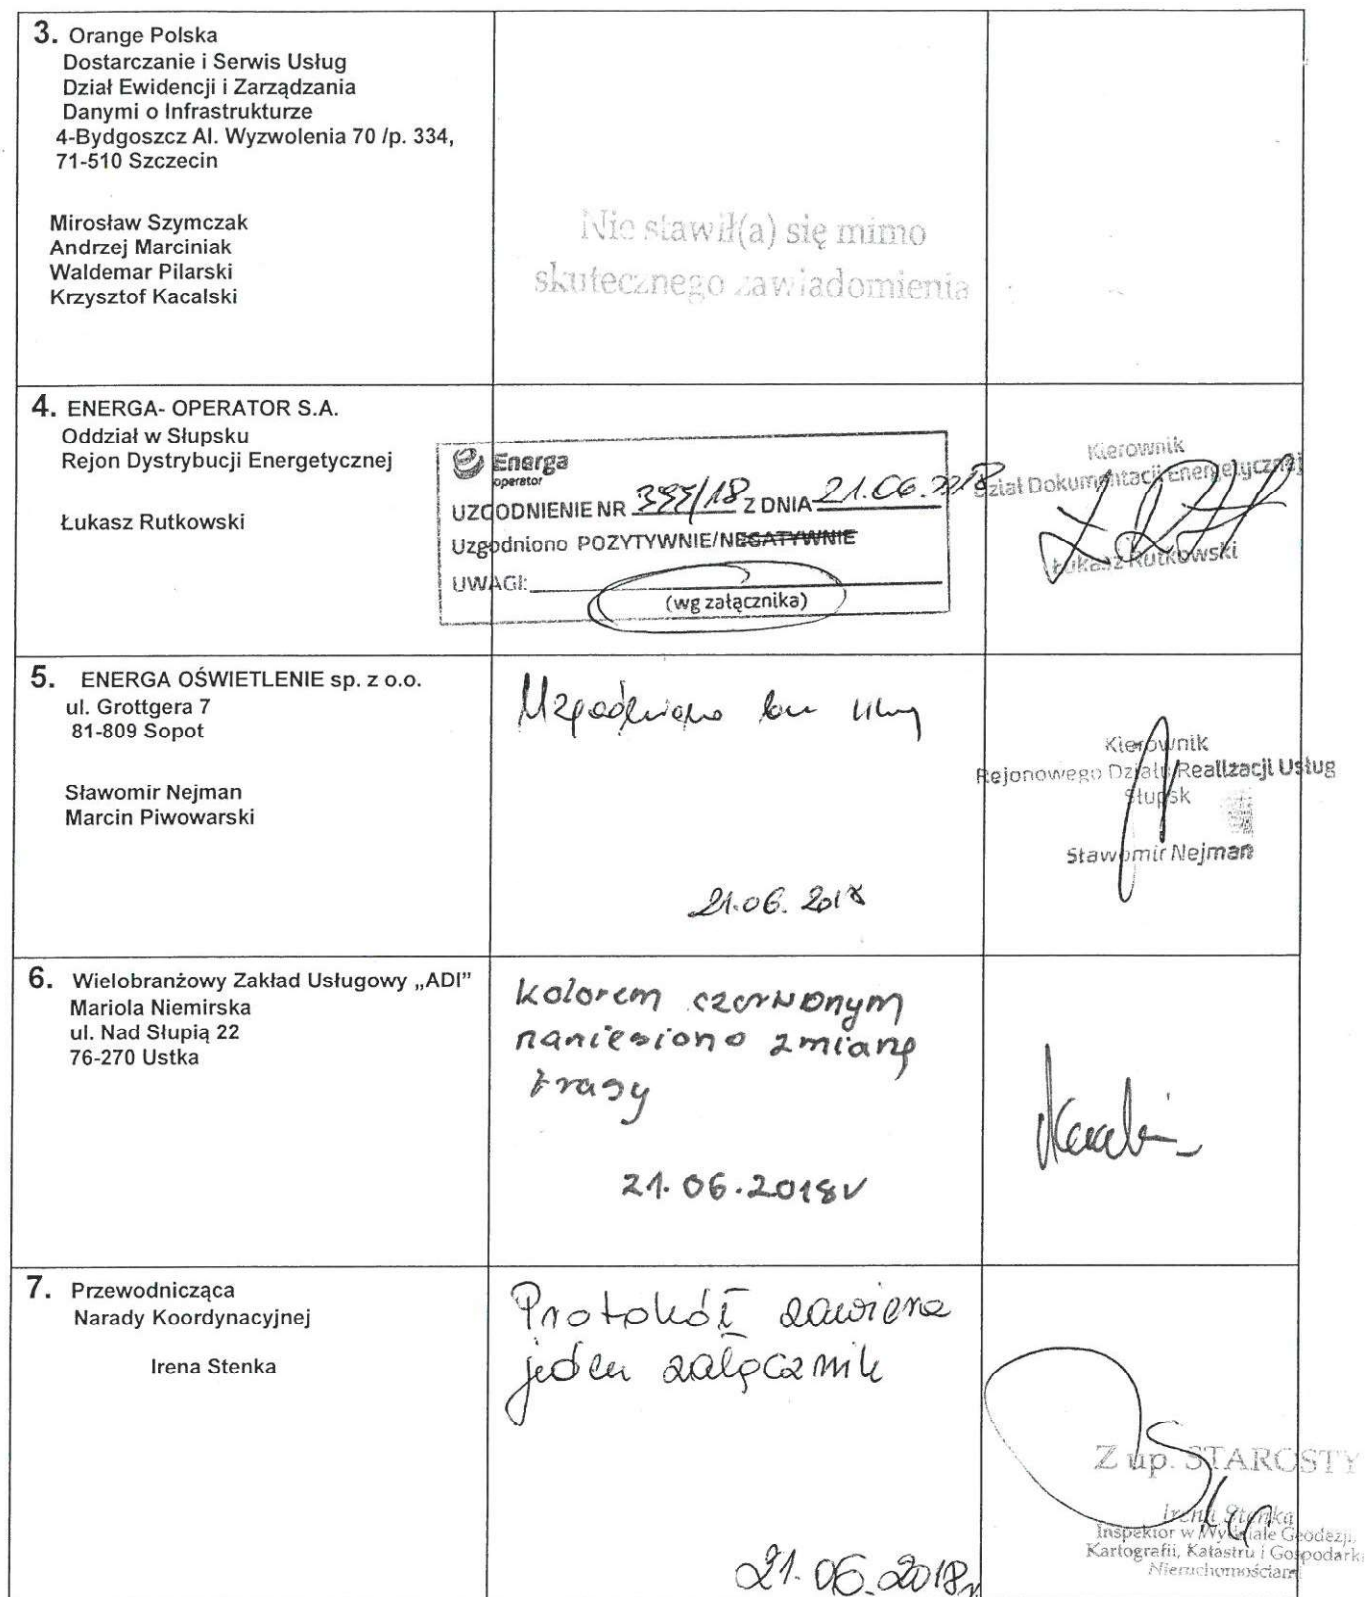 3. Orange Polska
Dostarczanie i Serwis Usług
Dział Ewidencji i Zarządzania
Danymi o Infrastrukturze
4-Bydgoszcz Al. Wyzwolenia 70 /p. 334,
71-510 Szczecin
Mirosław Szymczak
Andrzej Marciniak
Waldemar Pilarski
Krzysztof Kacalski
Nie stawił(a) się mimo
skutecznego zawiadomienia
4. ENERGA- OPERATOR S.A.
Oddział w Słupsku
Rejon Dystrybucji Energetycznej
Łukasz Rutkowski
Energa
operator
UZGODNIENIE NR /18 Z DNIA 21.06.2018
Uzgodniono POZYTYWNIE/NEGATYWNIE
UWAGI:
(wg załącznika)
Kierownik
Dział Dokumentacji Energetycznej
Łukasz Rutkowski
5. ENERGA OŚWIETLENIE sp. z o.o.
ul. Grottgera 7
81-809 Sopot
Sławomir Nejman
Marcin Piwowarski
Uzgodniono bez uwag
21.06.2018
Kierownik
Rejonowego Działu Realizacji Usług
Słupsk
Sławomir Nejman
6. Wielobranżowy Zakład Usługowy „ADI”
Mariola Niemirska
ul. Nad Słupią 22
76-270 Ustka
kolorem czerwonym
naniesiono zmianę
trasy
21.06.2018r
7. Przewodnicząca
Narady Koordynacyjnej
Irena Stenka
Protokół zawiera
jeden załącznik
21.06.2018r
Z up. STAROSTY
Irena Stenka
Inspektor w Wydziale Geodezji,
Kartografii, Katastru i Gospodarki
Nieruchomościami